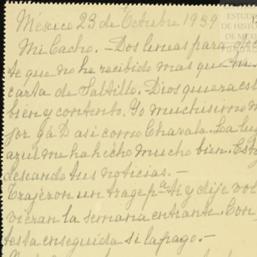 México 23 de Octubre 1939
Mi Cacho. - Dos lineas para
te que no he recibido mas que
carta de Saltillo. Dios quiera est
bien y contento. Yo muchisimo m
jor G. á D. asi como Chavala. La luz
azul me ha hecho mucho bien. Est
deseando tus noticias. -
Trajeron un trage pª ti y dije vol
vieran la semana entrante. Con
testa enseguida si lo pago. -
ESTUDIOS
DE HISTORIA
DE MÉXICO